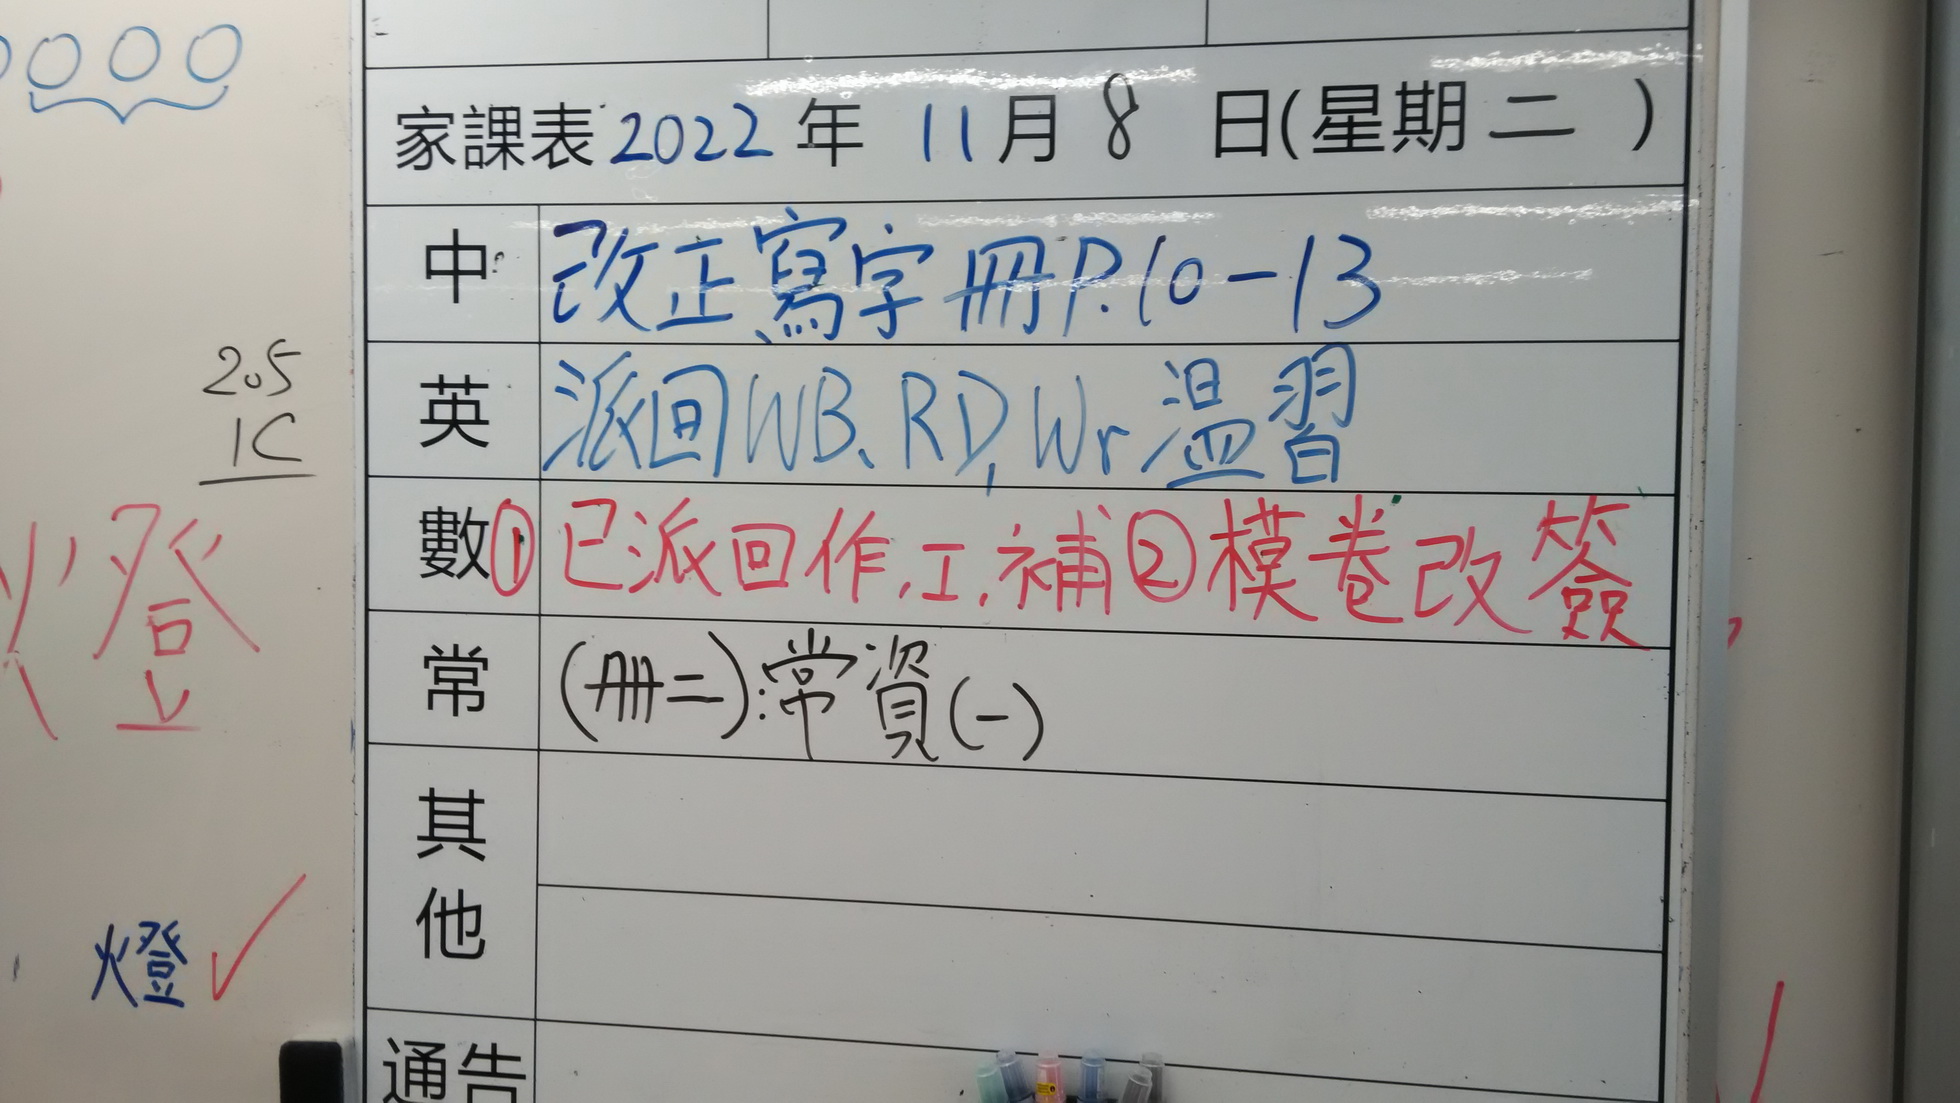 家課表 2022 年 11 月 8 日(星期二)
中 改正寫字冊P.10-13
英 派回WB、RD, Wr 溫習
數 ① 已派回作,工,補 ② 模卷改簽
常 (冊二):常資(一)
其他
通告
2.5
1C
燈
燈